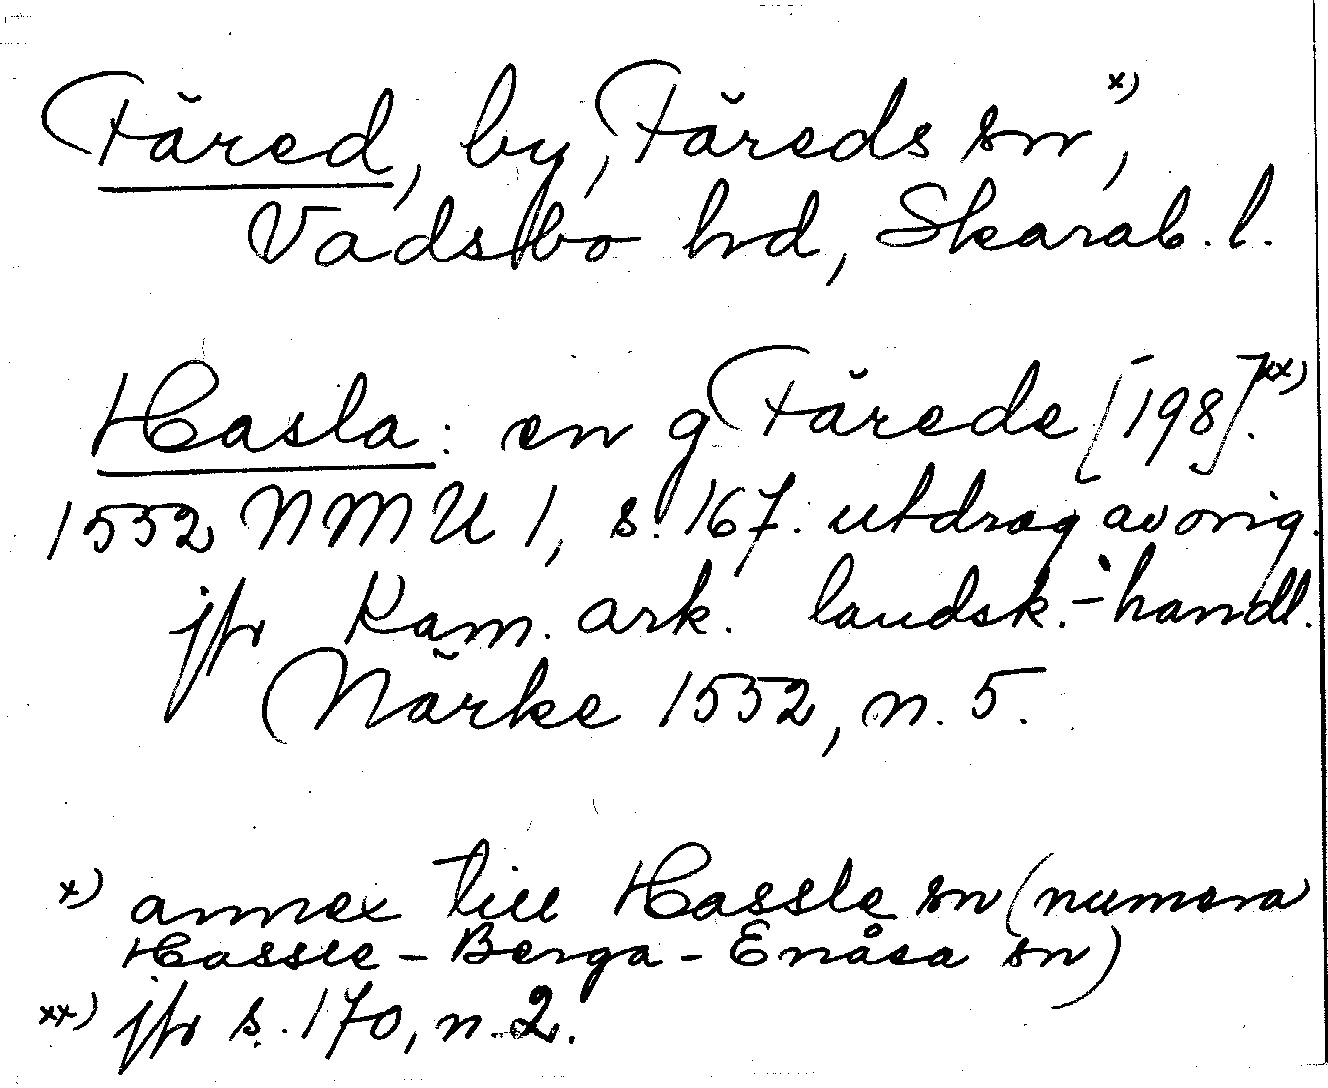 Färed, by, Färeds sn x),
Vadsbo hd, Skarab. l.
Hasla: en g Färede [198] xx).
1552 NMU 1, s. 167. utdrag av orig.
jfr Kam. ark. landsk.-handl.
Närke 1552, n. 5.
x) annex till Hassle sn (numera
Hassle-Berga-Enåsa sn)
xx) jfr s. 170, n. 2.